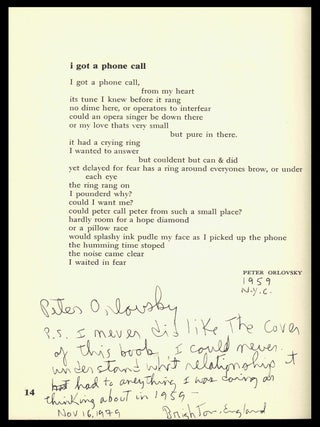 i got a phone call
I got a phone call,
from my heart
its tune I knew before it rang
no dime here, or operators to interfear
could an opera singer be down there
or my love thats very small
but pure in there.
it had a crying ring
I wanted to answer
but couldent but can & did
yet delayed for fear has a ring around everyones brow, or under
each eye
the ring rang on
I pounderd why?
could I want me?
could peter call peter from such a small place?
hardly room for a hope diamond
or a pillow race
would splashy ink pudle my face as I picked up the phone
the humming time stoped
the noise came clear
I waited in fear
PETER ORLOVSKY
1959
N.Y.C.
Peter Orlovsky
P.S. I never dislike The Cover
of this book, I could never
understand what relationship it
had to aneything I was doing or
thinking about in 1959 —
14
Nov 16, 1979 Brighton, England